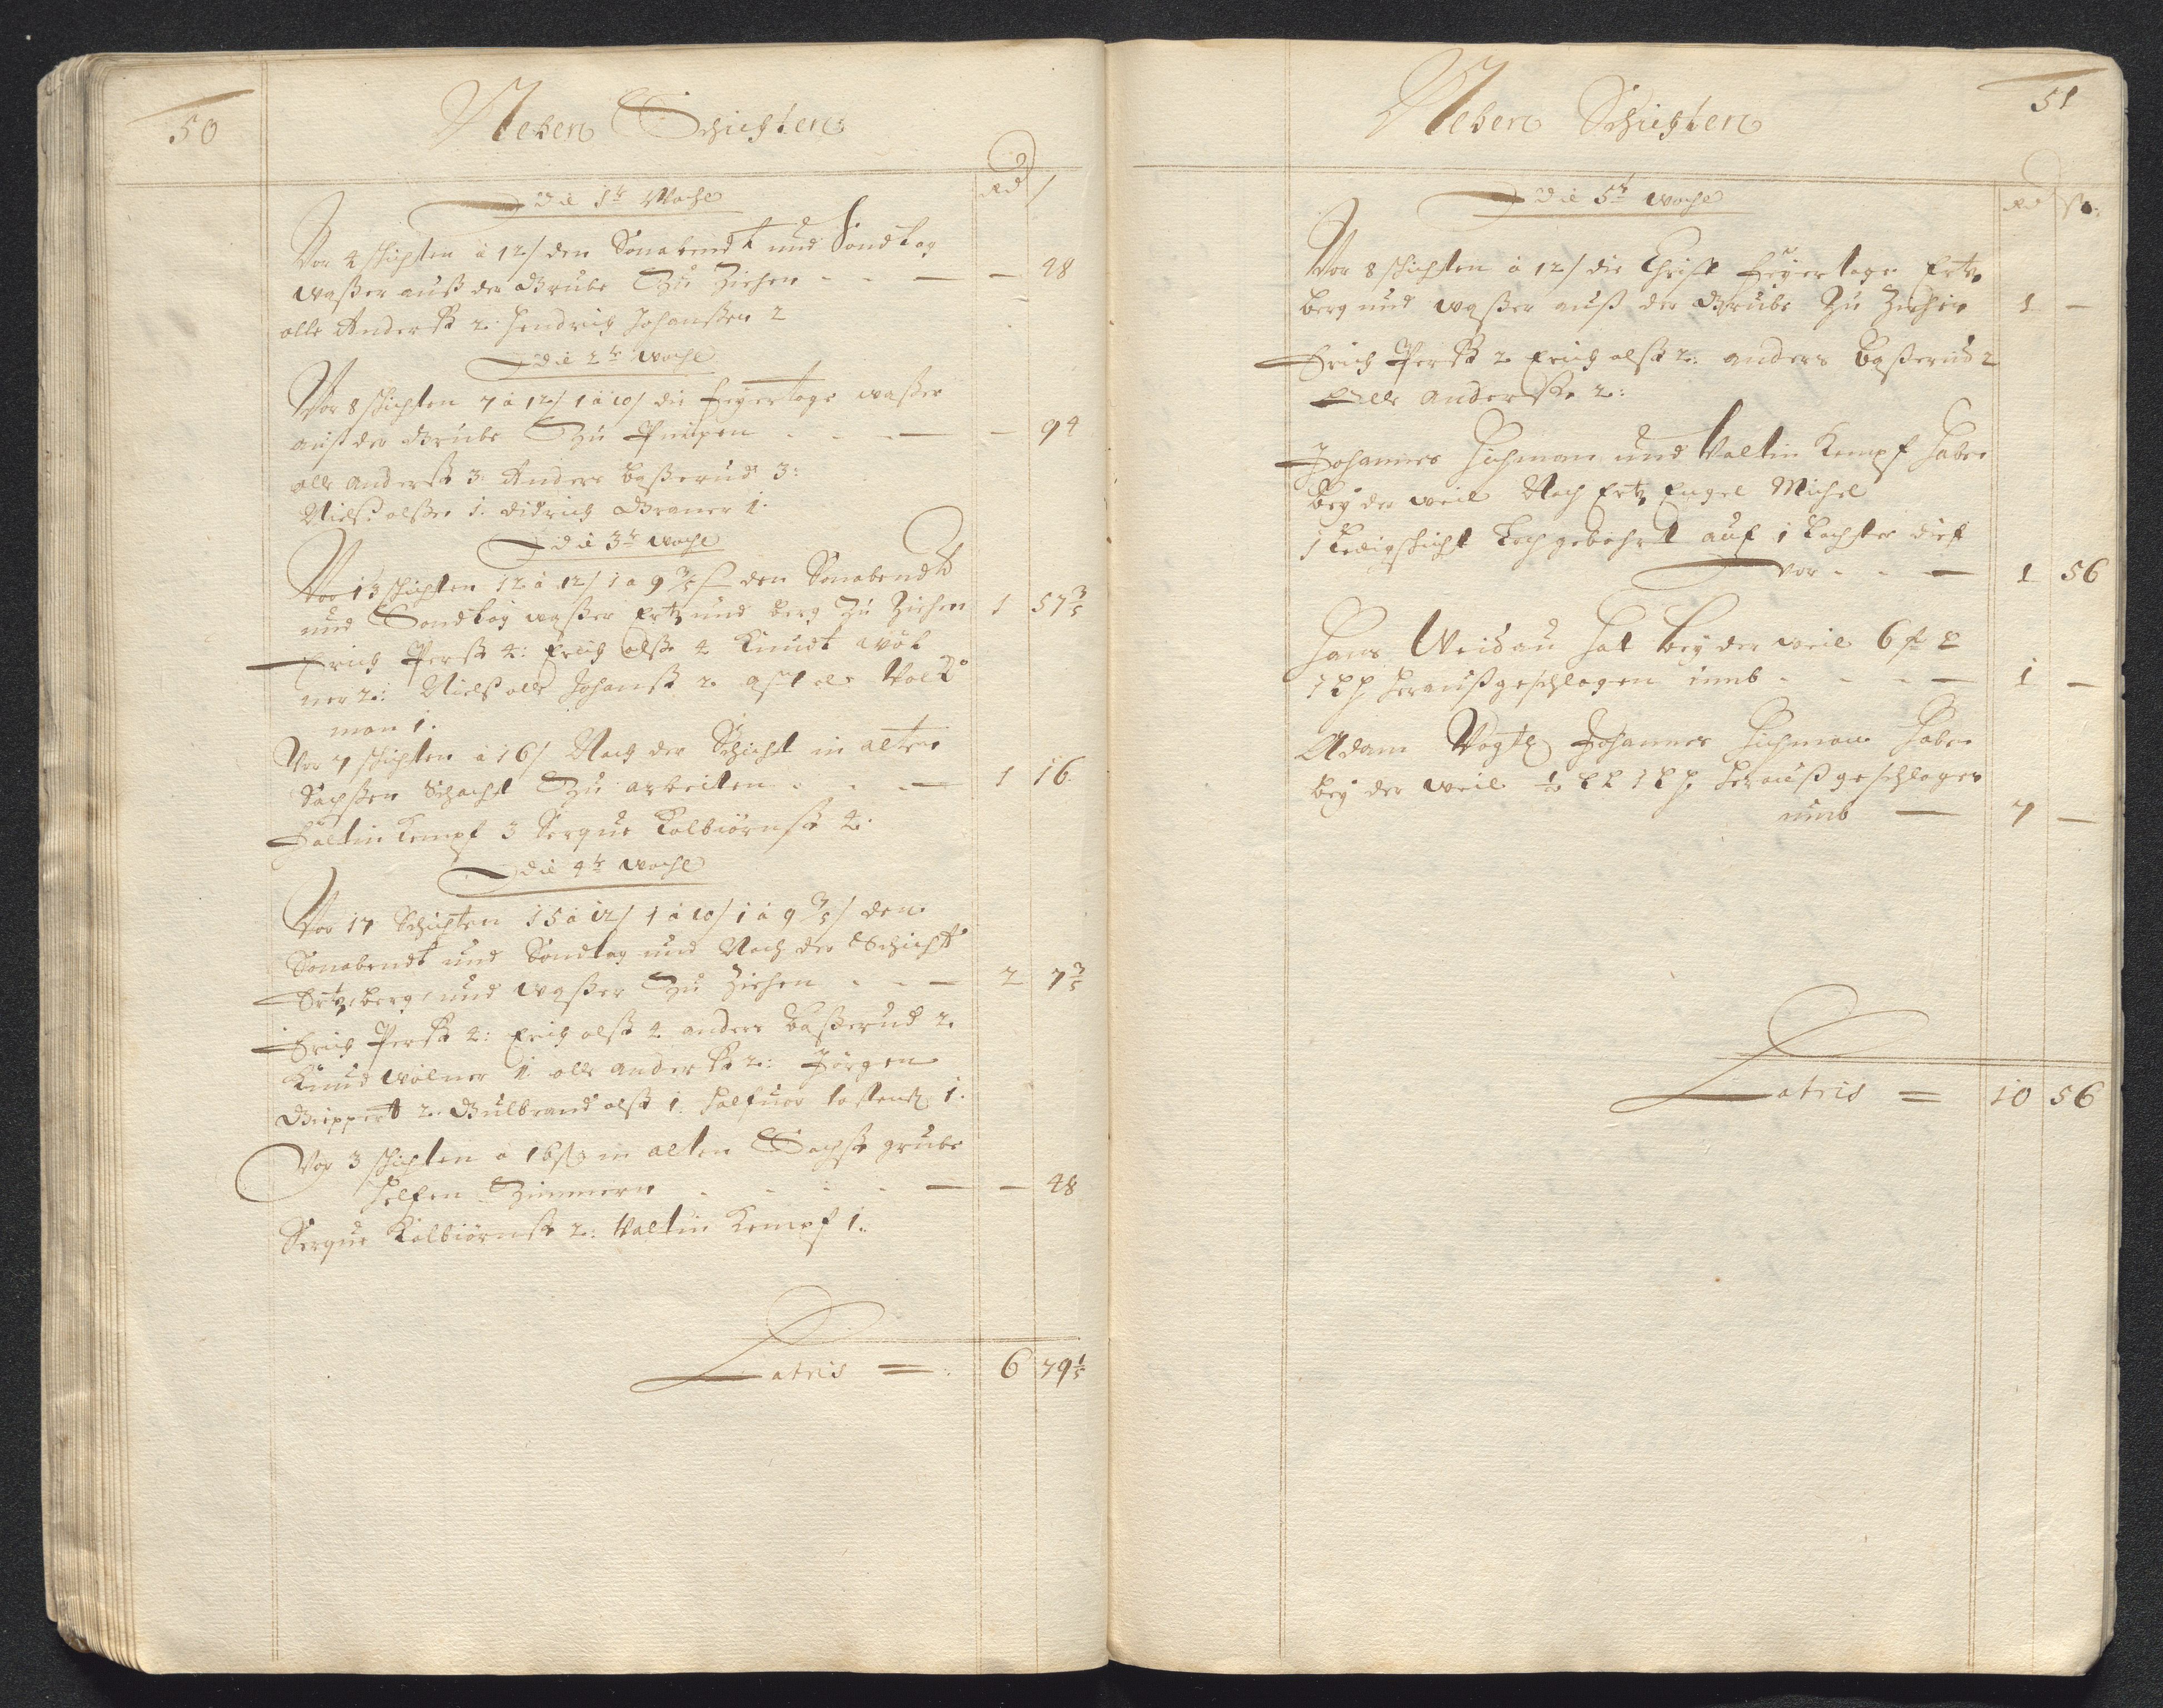 50
Neben Schichten
Rd ß
Die 1te Woche
Vor 4 schichten à 12 ß den Sonabendt und Sondtag
waßer auß der Grube Zu Ziehen - - — — 48
olle Anderß: 2. Hendrich Johanßen 2
Die 2te woche
Vor 8 schichten 7 à 12 ß 1 à 10 ß die feyertage waßer
auß der Grube Zu Pumpen - - — — 94
olle anderß: 3. Anders baßerud 3:
Nielß olßen 1. didrich Graner 1.
Die 3te woche
Vor 13 schichten 12 à 12 ß 1 a 9 3/5 ß den Sonabendt
und Sondtag waßer Ertz und berg Zu Ziehen 1 57 3/5
Erich Perß: 4: Erich olße 4 Knudt wol
ner 2.: Nielß olle Johanß: 2.
man 1.
Vor 7 schichten à 16 ß Nach der Schicht in alten
Sachßen Schacht Zu arbeiten - - — 1 16
Faltin Kempf 3 Torgue Kolbiörnß: 4.
Die 4te woche
Vor 17 Schichten 15 à 12 ß 1 à 10 ß 1 à 9 3/5 ß den
Sonabendt und Sondtag und Nach der Schicht
Ertz, berg, und waßer Zu Ziehen - - — 2 7 3/5
Erich Perß: 4: Erich olß: 4 anders baßerud 2.
Knud wolner 1. olle anderß: 2.: Jörgen
Gippert 2. Gulbrand olß: 1. Halfuor 1.
Vor 3 schichten à 16 ß in alten Sachß: grube
helfen Zimmern - - - - — — 48
Torgue Kolbiörnß: 2.: Valtin Kempf 1.
Latris = 6 79 1/5
51
Neben Schichten
Rd ß:
Die 5te woche
Vor 8 schichten à 12 ß die Christ feyertage Ertz,
berg und waßer auß der Grube Zu Ziehen 1 —
Erich Perß: 2. Erich olß: 2.: anders baßerud 2
Olle anderßen 2.:
Johannes Hichman und Valtin Kempf haben
bey der weil Nach Ertz Engel Michel
1 ledigschicht loch gebohrt auf 1 lachter dief
vor - - — 1 56
Hans Weidau hat bey der weil 6
heraußgeschlagen umb - - - — 1 —
Adam Vogtl Johannes Hichman haben
bey der weil heraußgeschlagen
umb — 7 —
Latris = 10 56